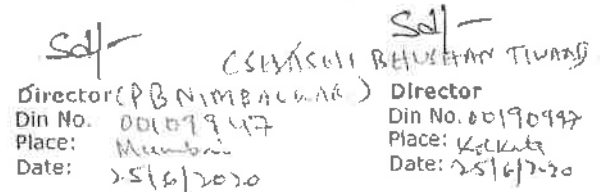 Sd/-
Director (PB NIMBALKAR)
Din No. 00109947
Place: Mumbai
Date: 25/6/2020
Sd/-
BHUSHAN TIWARI)
Director
Din No. 00190947
Place: Kolkata
Date: 25/6/2020